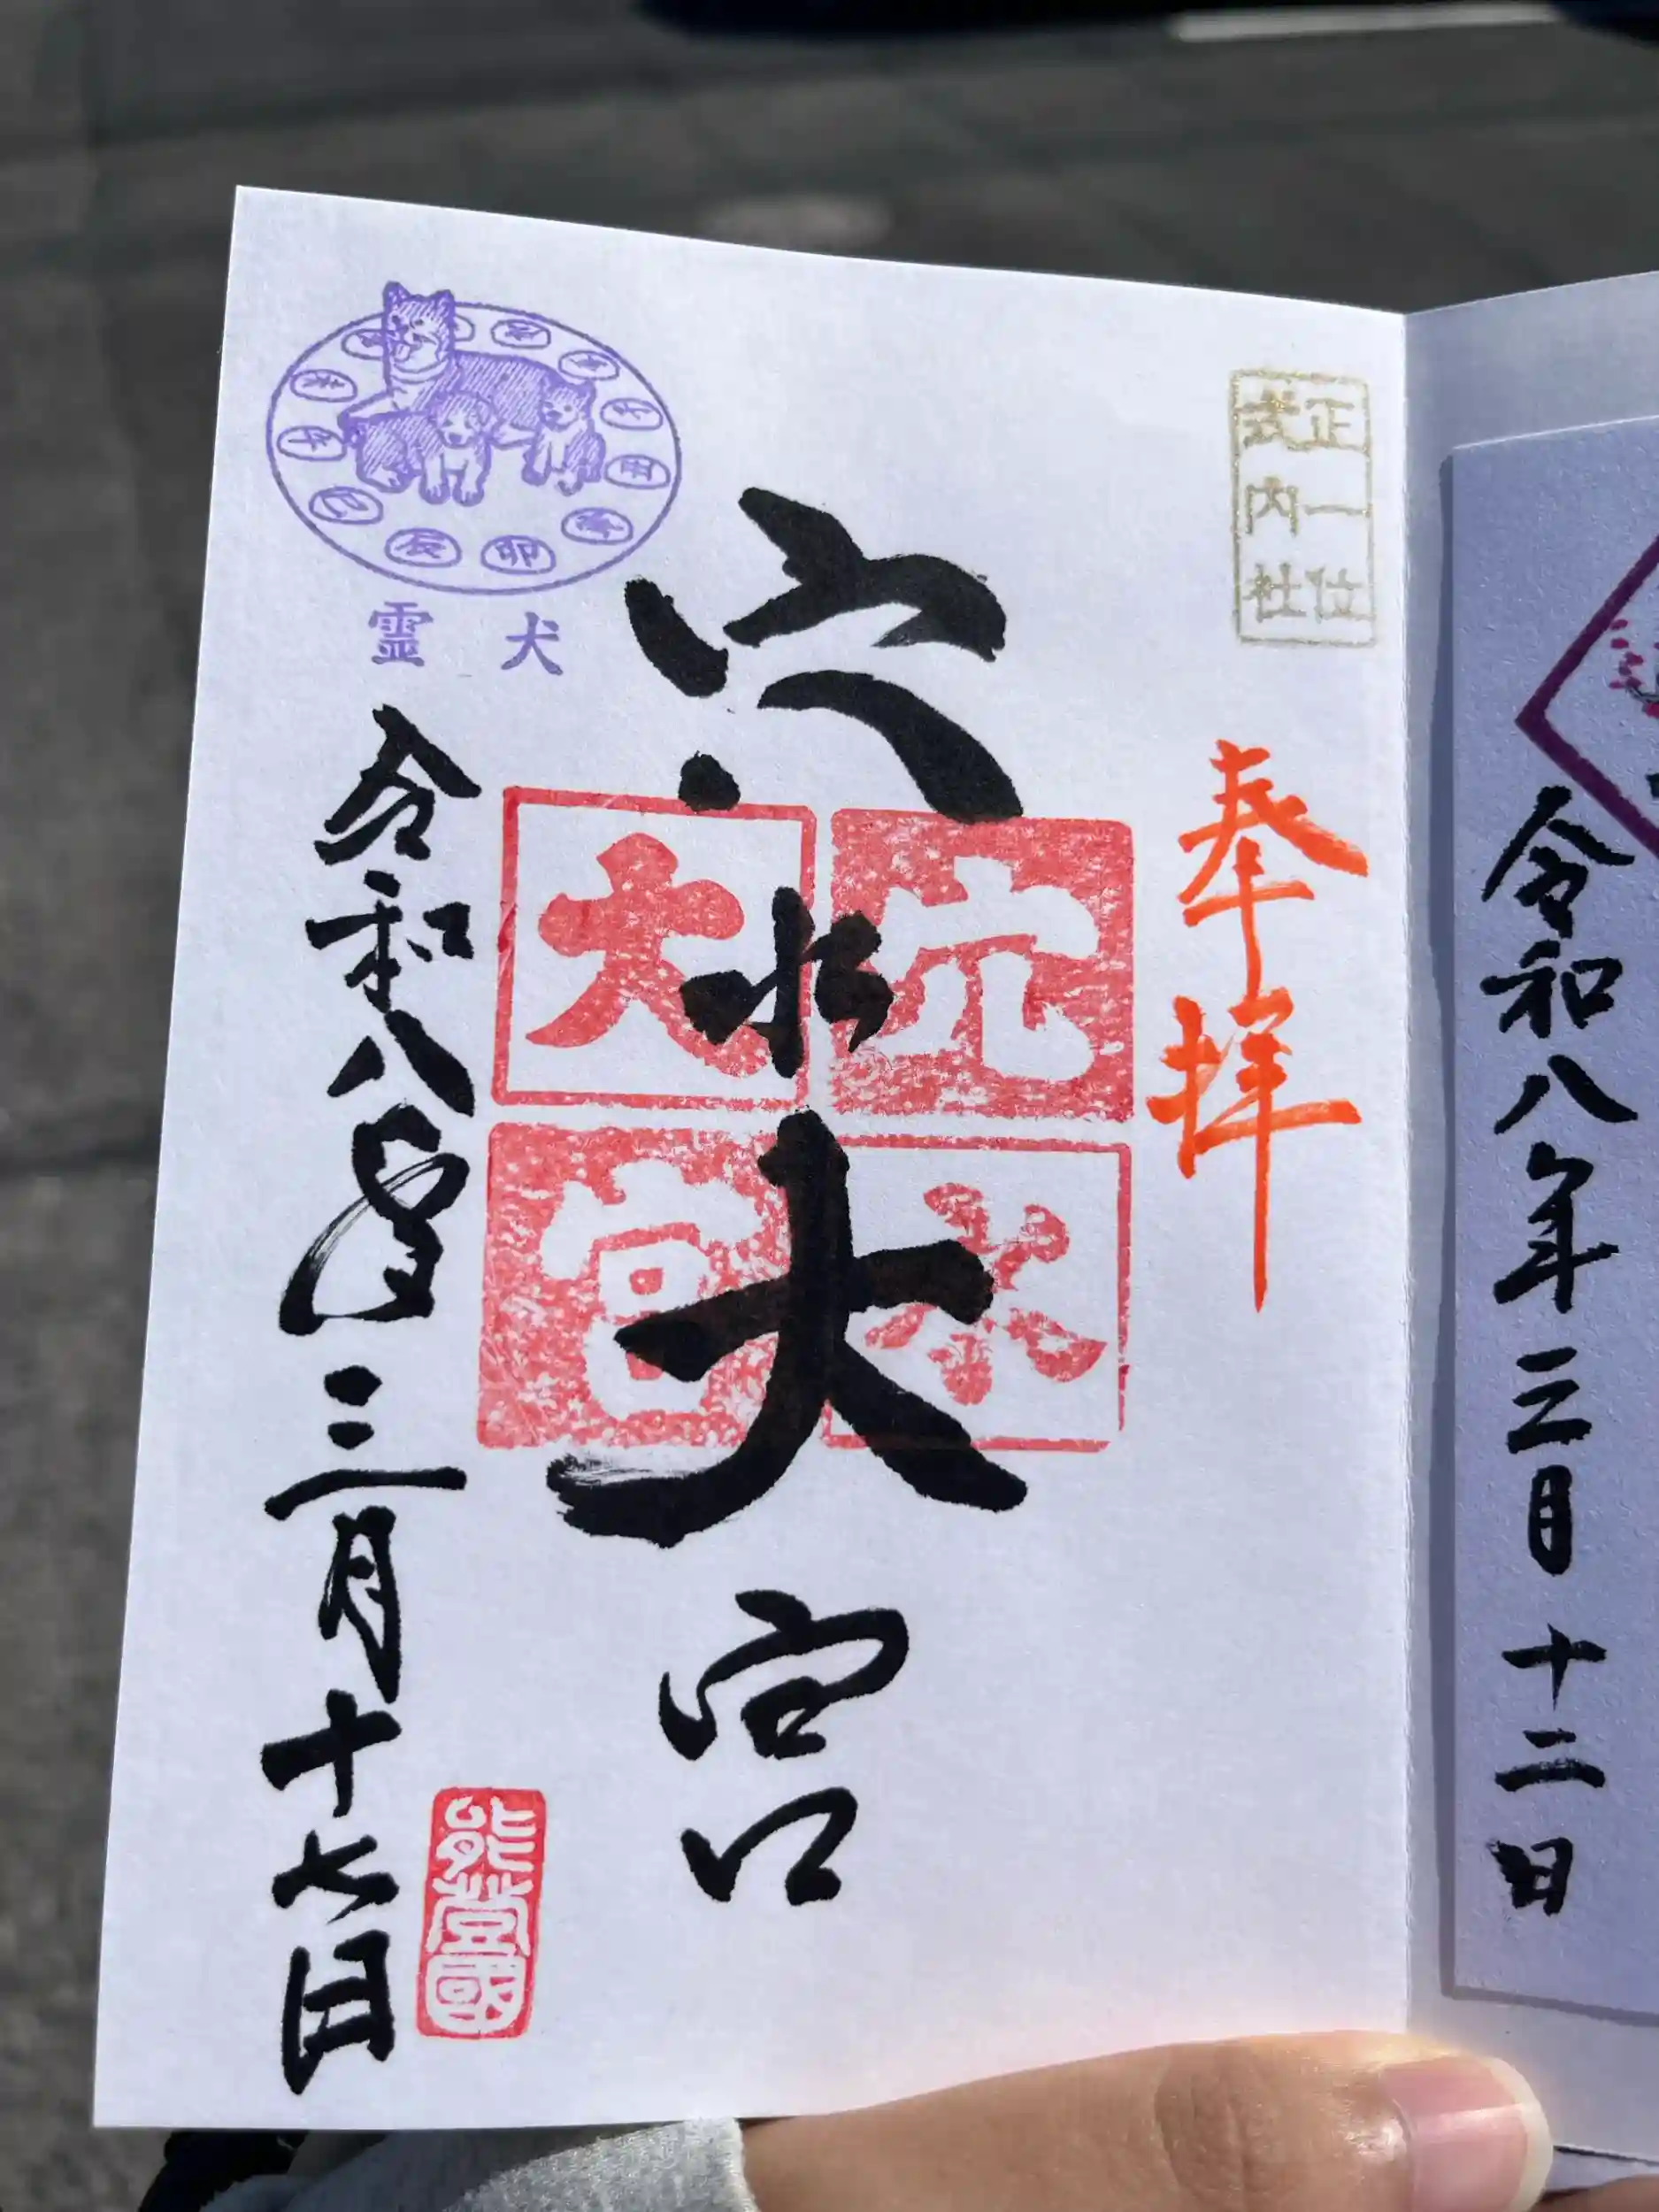 令和八年三月十二日
正一位
式内社
奉拝
穴水大宮
穴水
大宮
子
丑
寅
卯
辰
巳
午
未
霊犬
令和八歳三月十七日
能登國